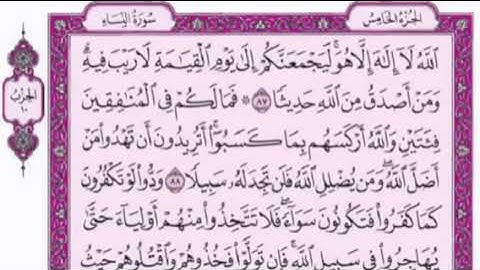 الجزء الخامس
سورة النساء
الله لا إله إلا هو ليجمعنكم إلى يوم القيامة لا ريب فيه
ومن أصدق من الله حديثا ٨٧ ۞ فما لكم في المنافقين
فئتين والله أركسهم بما كسبوا أتريدون أن تهدوا من
أضل الله ومن يضلل الله فلن تجد له سبيلا ٨٨ ودوا لو تكفرون
كما كفروا فتكونون سواء فلا تتخذوا منهم أولياء حتى
يهاجروا في سبيل الله فإن تولوا فخذوهم واقتلوهم حيث
الحزب
١٠